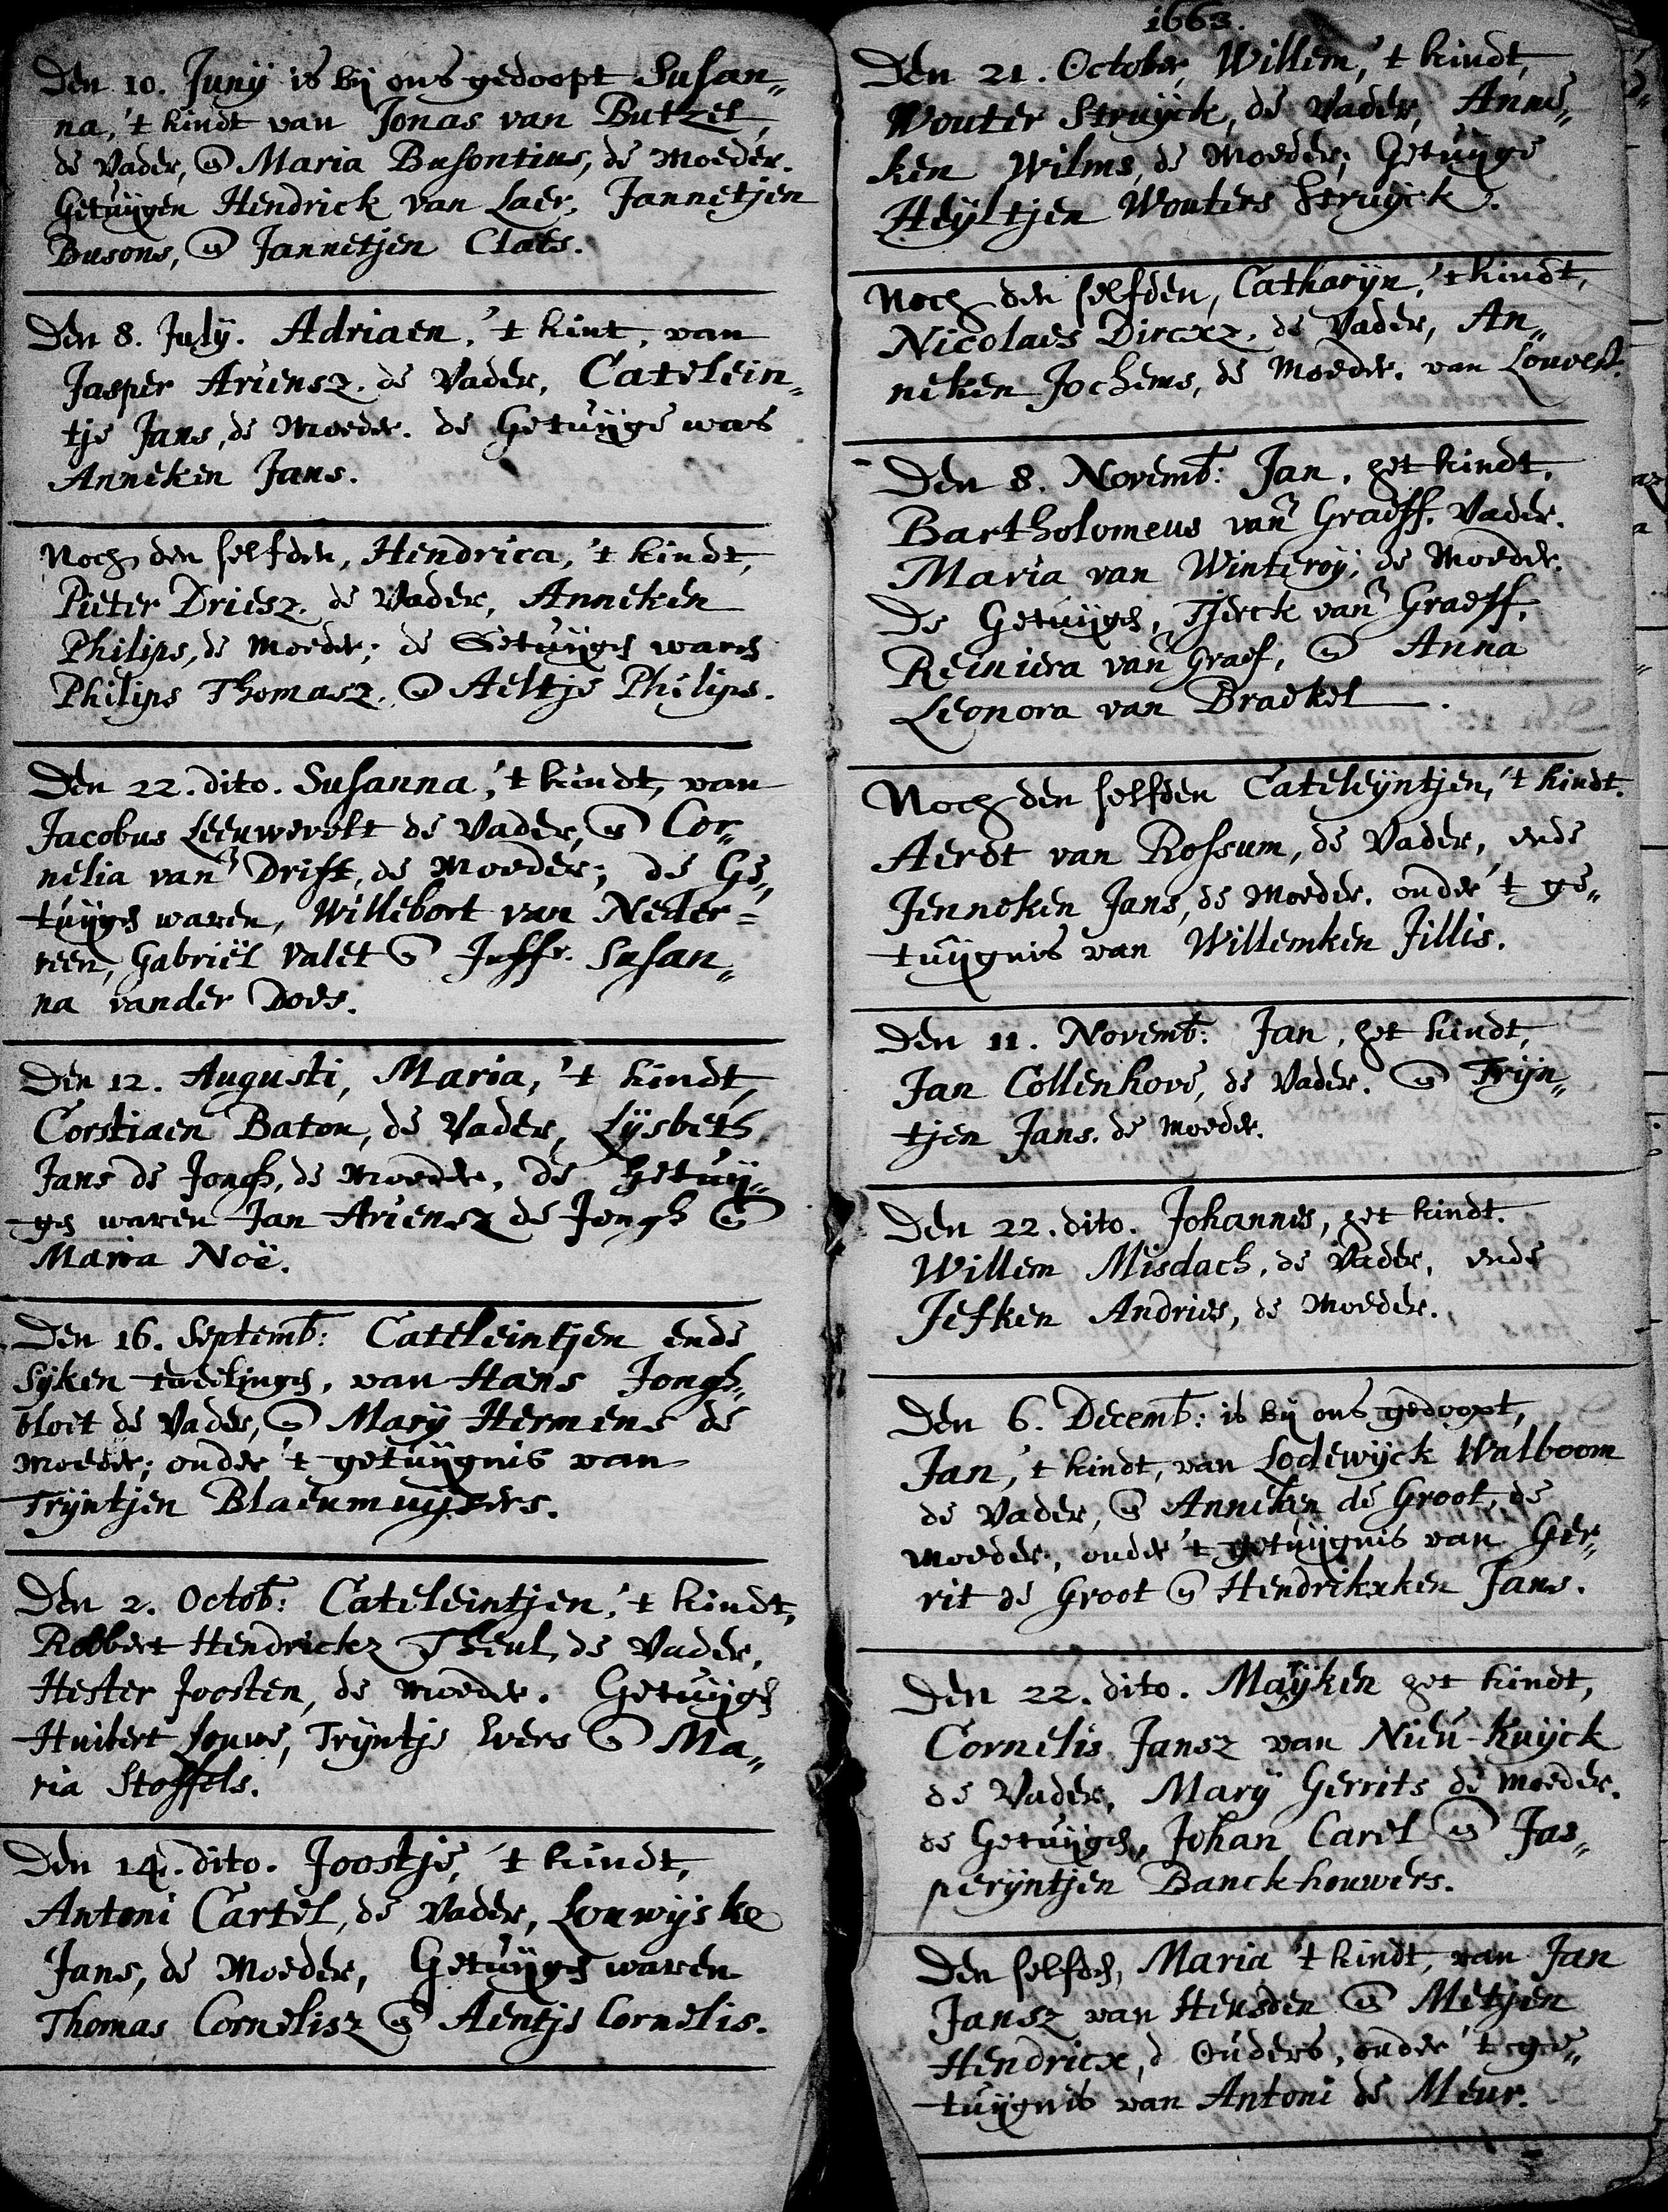 Den 10. Junij is bij ons gedoopt Susan„
na, 't kindt van Jonas van Butzel,
de Vader, & Maria Busontius, de Moeder.
Getuijgen Hendrick van Laer, Jannetjen
Busons, & Jannetjen Claes.
Den 8. Julij. Adriaen, 't kint, van
Jasper Ariensz. de Vader, Catelein„
tje Jans, de Moeder. de Getuijge was
Anneken Jans.
Noch den selfden, Hendrica, 't kindt,
Pieter Driesz. de Vader, Anneken
Philips, de Moeder; de Getuijgen waren
Philips Thomasz. & Aeltje Philips.
Den 22. dito. Susanna, 't kindt, van
Jacobus Leeuwerelt de Vader, & Cor„
nelia vanr Drift, de Moeder; de Ge„
tuijgen waren, Willebort van Neder=
veen, Gabriël Valet & Juffr. Susan„
na vander Does.
Den 12. Augusti, Maria, 't kindt,
Corstiaen Baton, de Vader, Lijsbeth
Jans de Jongh, de Moeder, de Getuij„
gen waren Jan Ariensz de Jongh &
Maria Noë.
Den 16. Septemb: Cateleintjen ende
Sijken tweelingen, van Hans Jongh„
bloet de Vader, & Marij Hermens de
Moeder; onder 't getuijgnis van
Trijntjen Blaeumuijsers.
Den 2. Octob: Cateleintjen, 't kindt,
Robbert Hendrickz Theul, de Vader,
Hester Joosten, de Moeder. Getuijgen
Huibert Louwe, Trijntje Evers & Ma„
ria Stoffels.
Den 14. dito. Joostje, 't kindt,
Antoni Cartel, de Vader, Louwijske
Jans, de Moeder, Getuijgen waren
Thomas Cornelisz & Aentje Cornelis.
1663.
Den 21. October, Willem, 't kindt,
Wouter Struijck, de Vader, Anne„
ken Wilms, de Moeder; Getuijge
Heijltjen Wouters Struijck.
Noch den selfden, Catharijn, 't kindt,
Nicolaes Dircxz. de Vader, An„
neken Jochems, de Moeder. van Louvest.
Den 8. Novemb: Jan, het kindt,
Bartholomeus vanr Graeff. Vader.
Maria van Winteroy; de Moeder.
De Getuijgen, Tjerck vanr Graeff,
Reiniera vanr Graef, & Anna
Leonora van Braekel.
Noch den selfden Cateleijntjen, 't kindt.
Aerdt van Rossum, de Vader, ende
Jenneken Jans, de Moeder. onder 't ge„
tuijgnis van Willemken Jillis.
Den 11. Novemb: Jan, het kindt,
Jan Collenhove, de Vader. & Trijn„
tjen Jans. de Moeder.
Den 22. dito. Johannes, het kindt.
Willem Misdach, de Vader, ende
Jefken Andries, de Moeder.
Den 6. Decemb: is bij ons gedoopt,
Jan, 't kindt, van Lodewijck Walboom
de Vader, & Anneken de Groot, de
Moeder, onder 't getuijgnis van Ger„
rit de Groot & Hendrikxken Jans.
Den 22. dito. Maijken het kindt,
Cornelis Jansz van Nieu-Kuijck
de Vader, Marij Gerrits de Moeder.
de Getuijgen, Johan Carel & Jas„
perijntjen Banckhouwers.
Den selfden, Maria 't kindt, van Jan
Jansz van Heusden & Metjen
Hendricx, d Ouders, onder 't ge„
tuijgnis van Antoni de Meur.